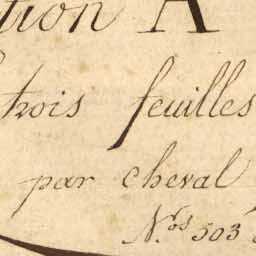 tion A
trois feuilles
par cheval
N.ros 503